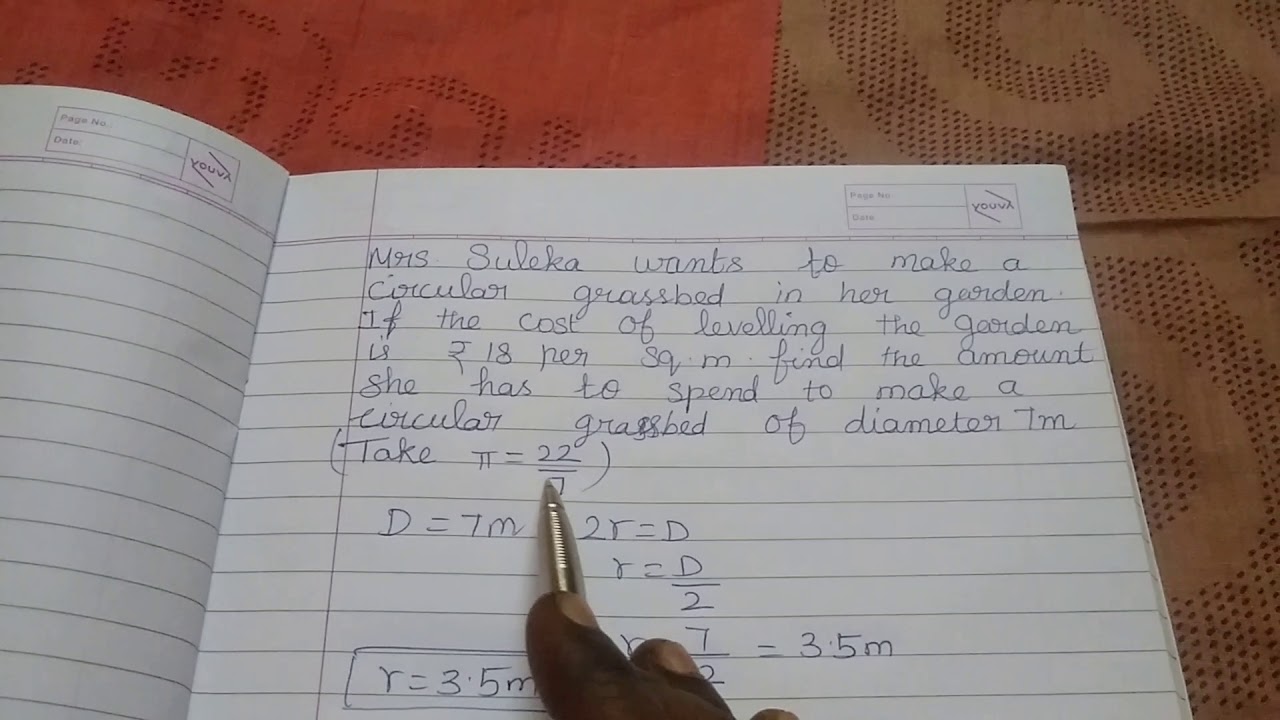 Page No.:
Date:
youva
Page No.
Date:
youva
Mrs. Suleka wants to make a
circular grassbed in her garden.
If the cost of levelling the garden
is ₹ 18 per sq.m. find the amount
she has to spend to make a
circular grassbed of diameter 7m
(Take π = 22/7)
D = 7m 2r = D
r = D/2
7/2 = 3.5m
r = 3.5m